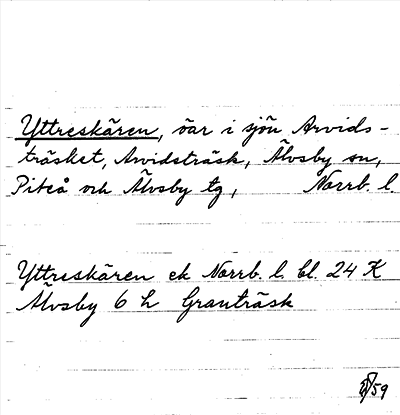 Yttreskären, öar i sjön Arvids-
träsket, Arvidsträsk, Älvsby sn,
Piteå och Älvsby tg, Norrb. l.
Yttreskären ek Norrb. l. bl. 24 K
Älvsby 6 h Granträsk
/59